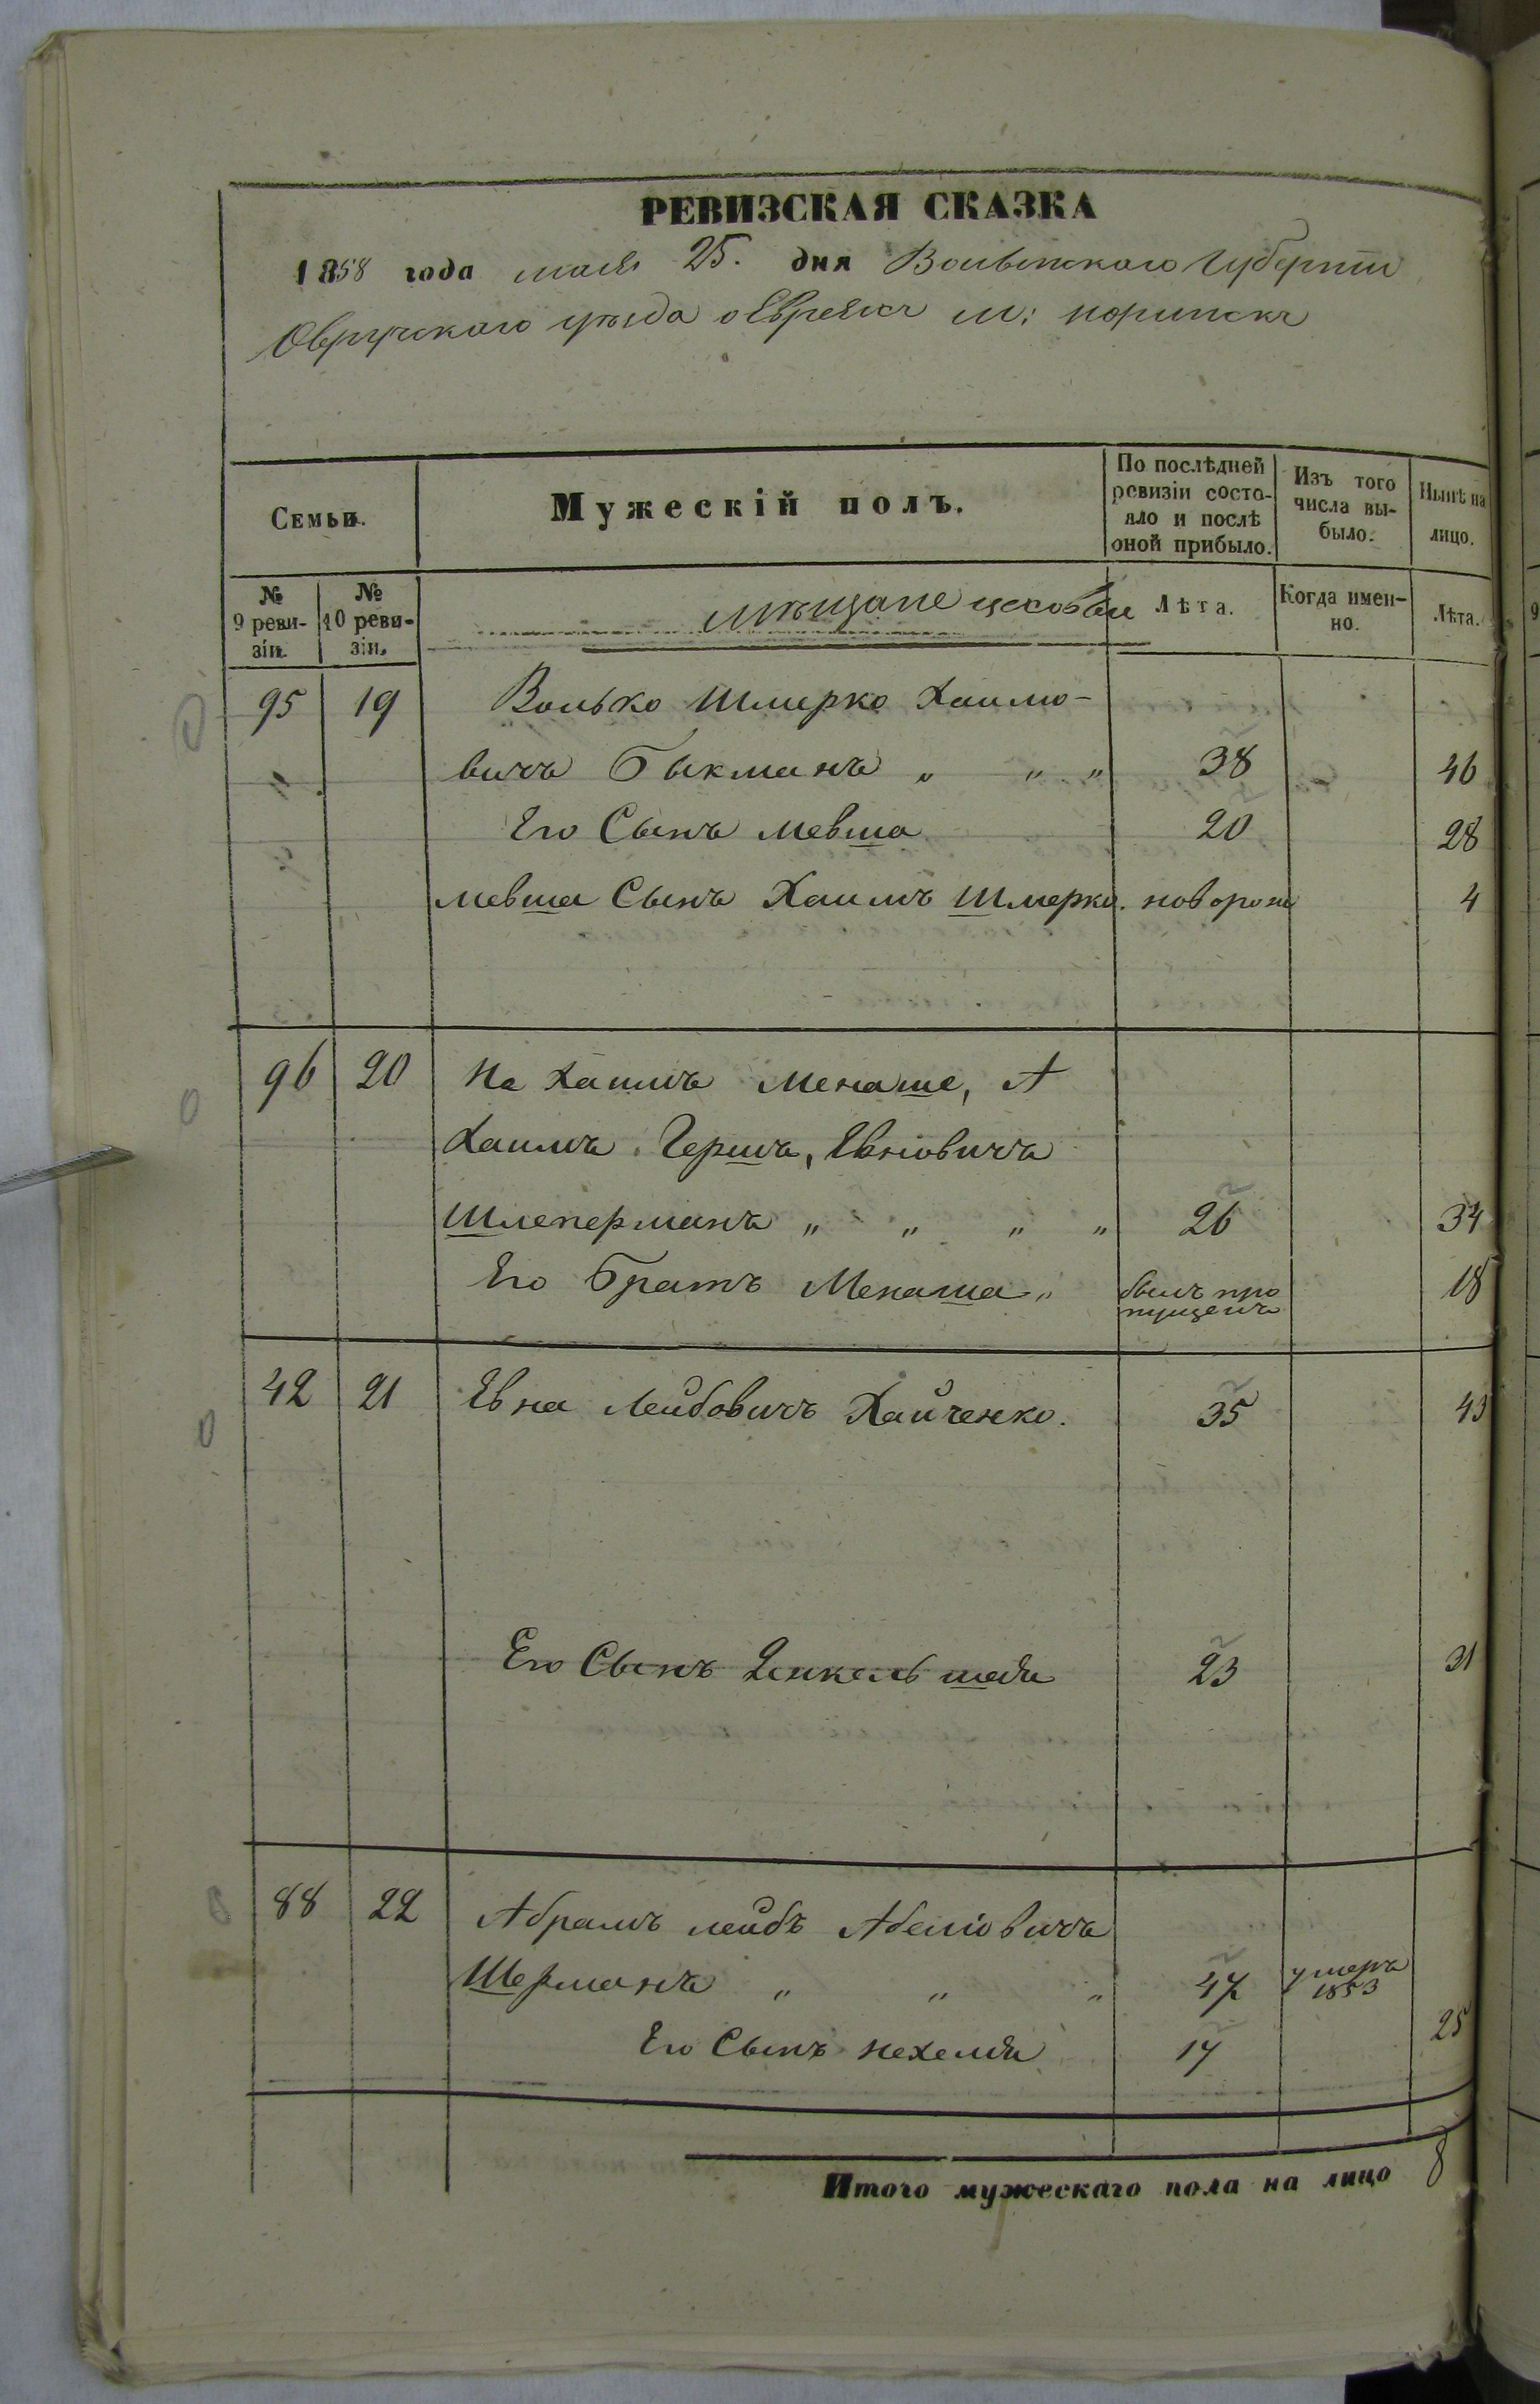 РЕВИЗСКАЯ СКАЗКА
1858 года мая 25. дня Волынского Губернии
Овручского уѣзда о Евреяхъ м: норинскъ
Семьи.
Мужескій полъ.
По послѣдней ревизіи состояло и послѣ оной прибыло.
Изъ того числа выбыло.
Нынѣ на лицо.
№ 9 ревизіи.
№ 10 ревизіи.
мѣщане цеховые
Лѣта.
Когда именно.
Лѣта.
95 19 Волько Шмерко Хаимо-
вичъ Быкманъ „ „ „ 38 46
Его Сынъ мевша 20 28
мевша Сынъ Хаимъ Шмерко. новорож 4
96 20 Не Хаимъ Менаше, А
Хаимъ Гершъ, Евновичъ
Шлеперманъ „ „ „ „ 26 34
Его братъ Менаша „ былъ про пущенъ 18
42 21 Евна Лейбовичъ Хайченко. 35 43
Его Сынъ Янкель 23 31
88 22 Абрамъ лейбъ Абеліовичъ
Шерманъ „ „ „ 47 умеръ 1853
Его Сынъ нехемія 17 25
Итого мужескаго пола на лицо 8